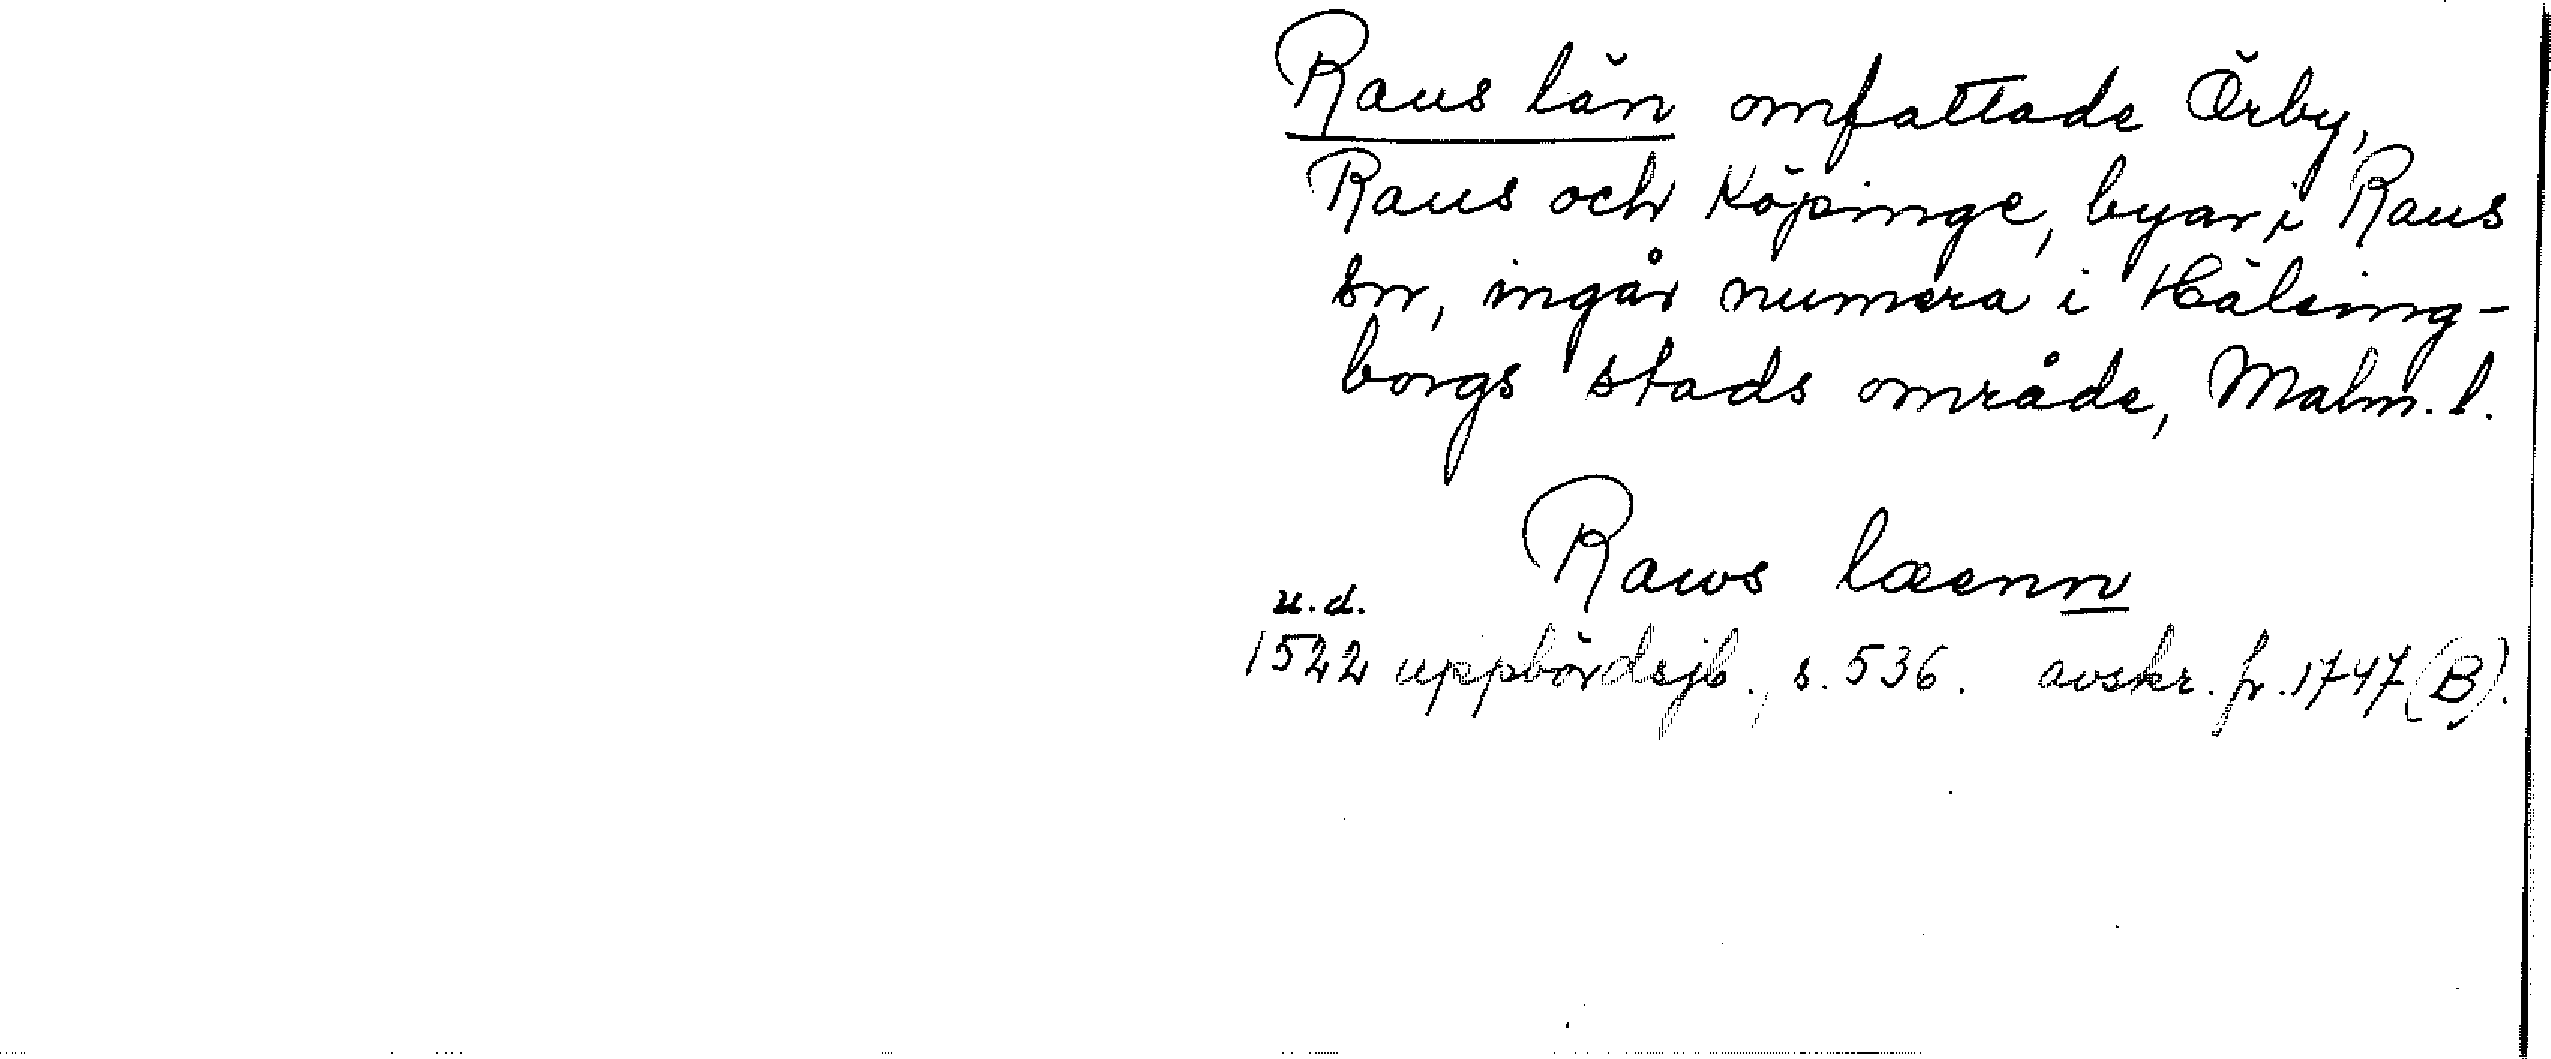 Raus län omfattade Örby,
Raus och Köpinge, byar i Raus
sn, ingår numera i Hälsing-
borgs stads område, Malm. l.
Raws læenn
u.d.
1522 uppbördsjb., s. 536. avskr. fr. 1747 (B).